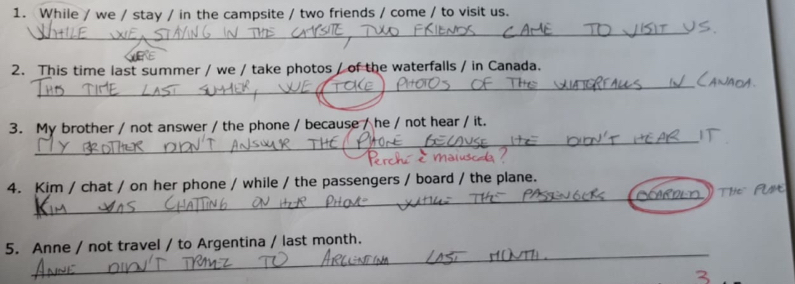 1. While / we / stay / in the campsite / two friends / come / to visit us.
WHILE WE STAYING IN THE CAMPSITE, TWO FRIENDS CAME TO VISIT US.
WERE
2. This time last summer / we / take photos / of the waterfalls / in Canada.
THIS TIME LAST SUMMER, WE TOKE PHOTOS OF THE WATERFALLS IN CANADA.
3. My brother / not answer / the phone / because / he / not hear / it.
MY BROTHER DIDN'T ANSWER THE PHONE BECAUSE HE DIDN'T HEAR IT
Perché è maiuscola?
4. Kim / chat / on her phone / while / the passengers / board / the plane.
KIM WAS CHATTING ON HER PHONE WHILE THE PASSENGERS BOARDED THE PLANE
5. Anne / not travel / to Argentina / last month.
ANNE DIDN'T TO ARGENTINA LAST MONTH.
3